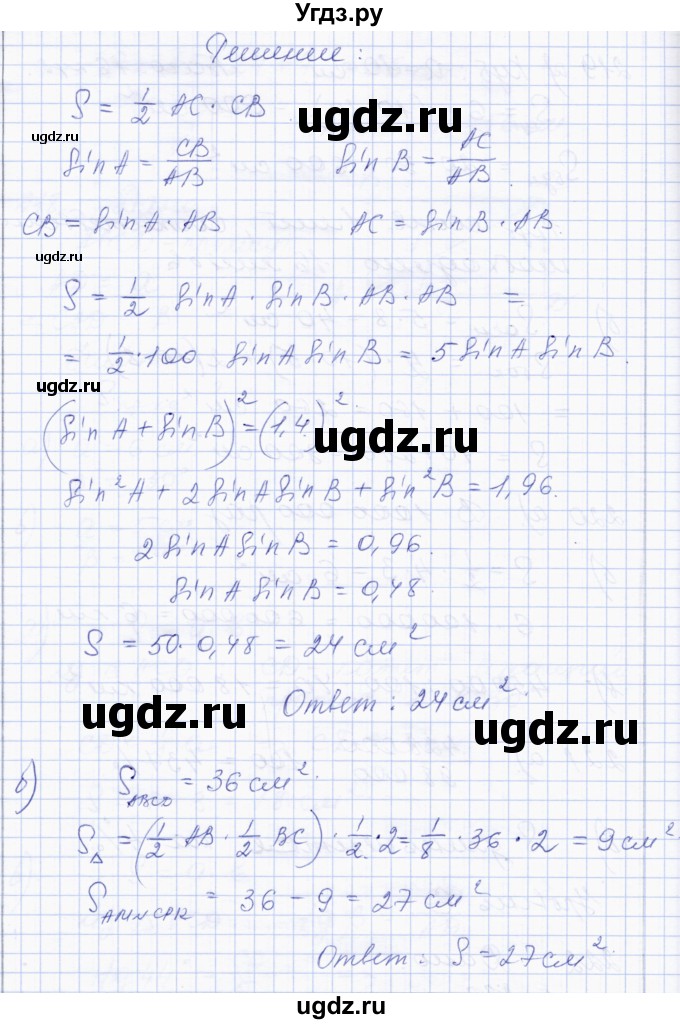 Угдз.ру
Решение:
S = 1/2 AC · CB
ugdz.ru
ugdz.ru
sin A = CB/AB sin B = AC/AB.
CB = sin A · AB AC = sin B · AB.
ugdz.ru
S = 1/2 sin A · sin B · AB · AB =
= 1/2 · 100 sin A sin B = 5 sin A sin B.
ugdz.ru
(sin A + sin B)² = (1,4)².
ugdz.ru
sin²A + 2 sin A sin B + sin²B = 1,96.
2 sin A sin B = 0,96.
sin A sin B = 0,48.
S = 50 · 0,48 = 24 см²
Ответ: 24 см².
ugdz.ru
ugdz.ru
б) S ABCD = 36 см².
S△ = (1/2 · AB · 1/2 BC) · 1/2 · 2 = 1/8 · 36 · 2 = 9 см²
S AMNCPK = 36 - 9 = 27 см²
Ответ: S = 27 см².
ugdz.ru
ugdz.ru